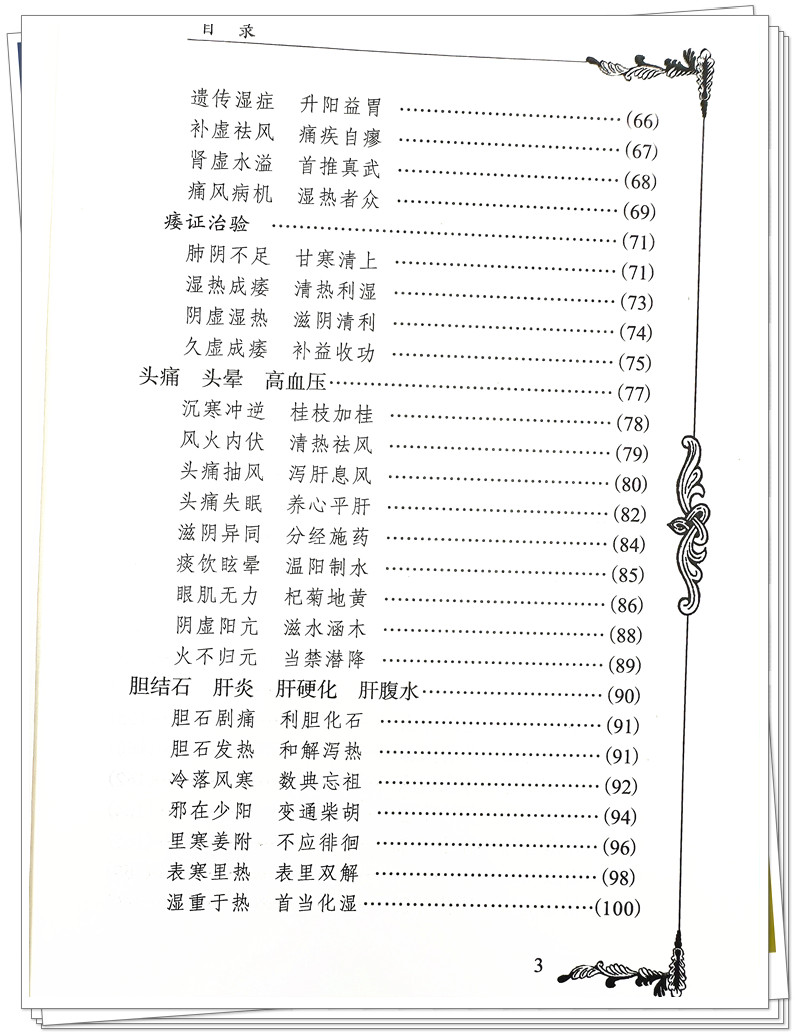 目 录
遗传湿症 升阳益胃 ……………………………(66)
补虚祛风 痛疾自瘳 ……………………………(67)
肾虚水溢 首推真武 ……………………………(68)
痛风病机 湿热者众 ……………………………(69)
痿证治验 ……………………………(71)
肺阴不足 甘寒清上 ……………………………(71)
湿热成痿 清热利湿 ……………………………(73)
阴虚湿热 滋阴清利 ……………………………(74)
久虚成痿 补益收功 ……………………………(75)
头痛 头晕 高血压……………………………(77)
沉寒冲逆 桂枝加桂 ……………………………(78)
风火内伏 清热祛风 ……………………………(79)
头痛抽风 泻肝息风 ……………………………(80)
头痛失眠 养心平肝 ……………………………(82)
滋阴异同 分经施药 ……………………………(84)
痰饮眩晕 温阳制水 ……………………………(85)
眼肌无力 杞菊地黄 ……………………………(86)
阴虚阳亢 滋水涵木 ……………………………(88)
火不归元 当禁潜降 ……………………………(89)
胆结石 肝炎 肝硬化 肝腹水……………………………(90)
胆石剧痛 利胆化石 ……………………………(91)
胆石发热 和解泻热 ……………………………(91)
冷落风寒 数典忘祖 ……………………………(92)
邪在少阳 变通柴胡 ……………………………(94)
里寒姜附 不应徘徊 ……………………………(96)
表寒里热 表里双解 ……………………………(98)
湿重于热 首当化湿……………………………(100)
3